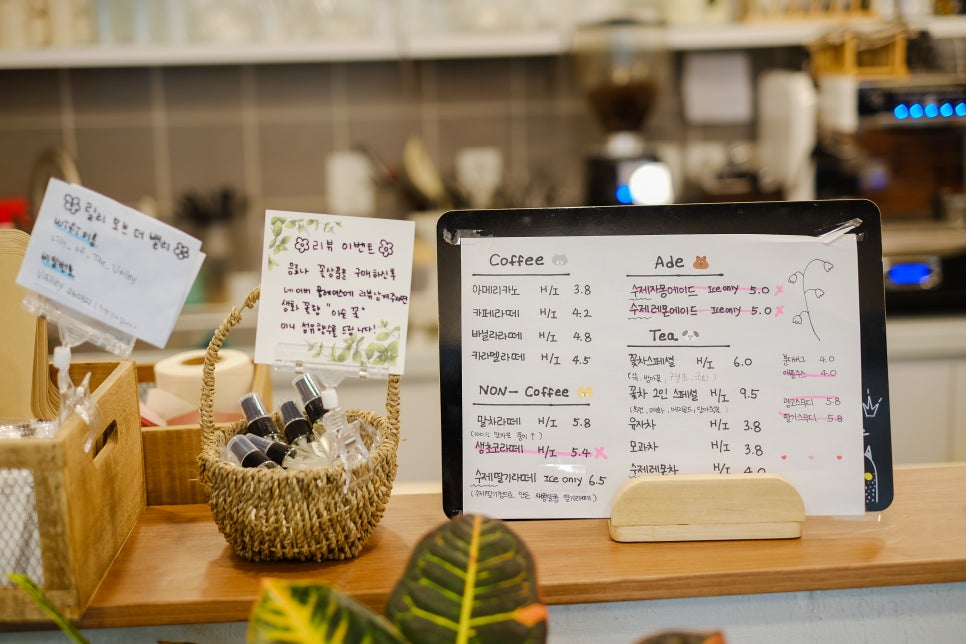 릴리 오브 더 밸리
wifi이름
Lily_of_The_Valley
비밀번호
리뷰 이벤트
음료나 꽃상품을 구매하신 후
네이버 플레이스에 리뷰남겨주시면
생화 꽃향 "이슬 꽃"
미니 섬유향수를 드립니다!
Coffee
아메리카노 H/I 3.8
카페라떼 H/I 4.2
바닐라라떼 H/I 4.8
카라멜라떼 H/I 4.5
NON- Coffee
말차라떼 H/I 5.8
생초코라떼 H/I 5.4
수제딸기라떼 Ice only 6.5
Ade
수제자몽에이드 Ice only 5.0
수제레몬에이드 Ice only 5.0
Tea
꽃차스페셜 H/I 6.0
꽃차 2인 스페셜 H/I 9.5
유자차 H/I 3.8
모과차 H/I 3.8
수제레몬차 H/I 4.0
뽀로로 4.0
4.0
망고스무디 5.8
딸기스무디 5.8